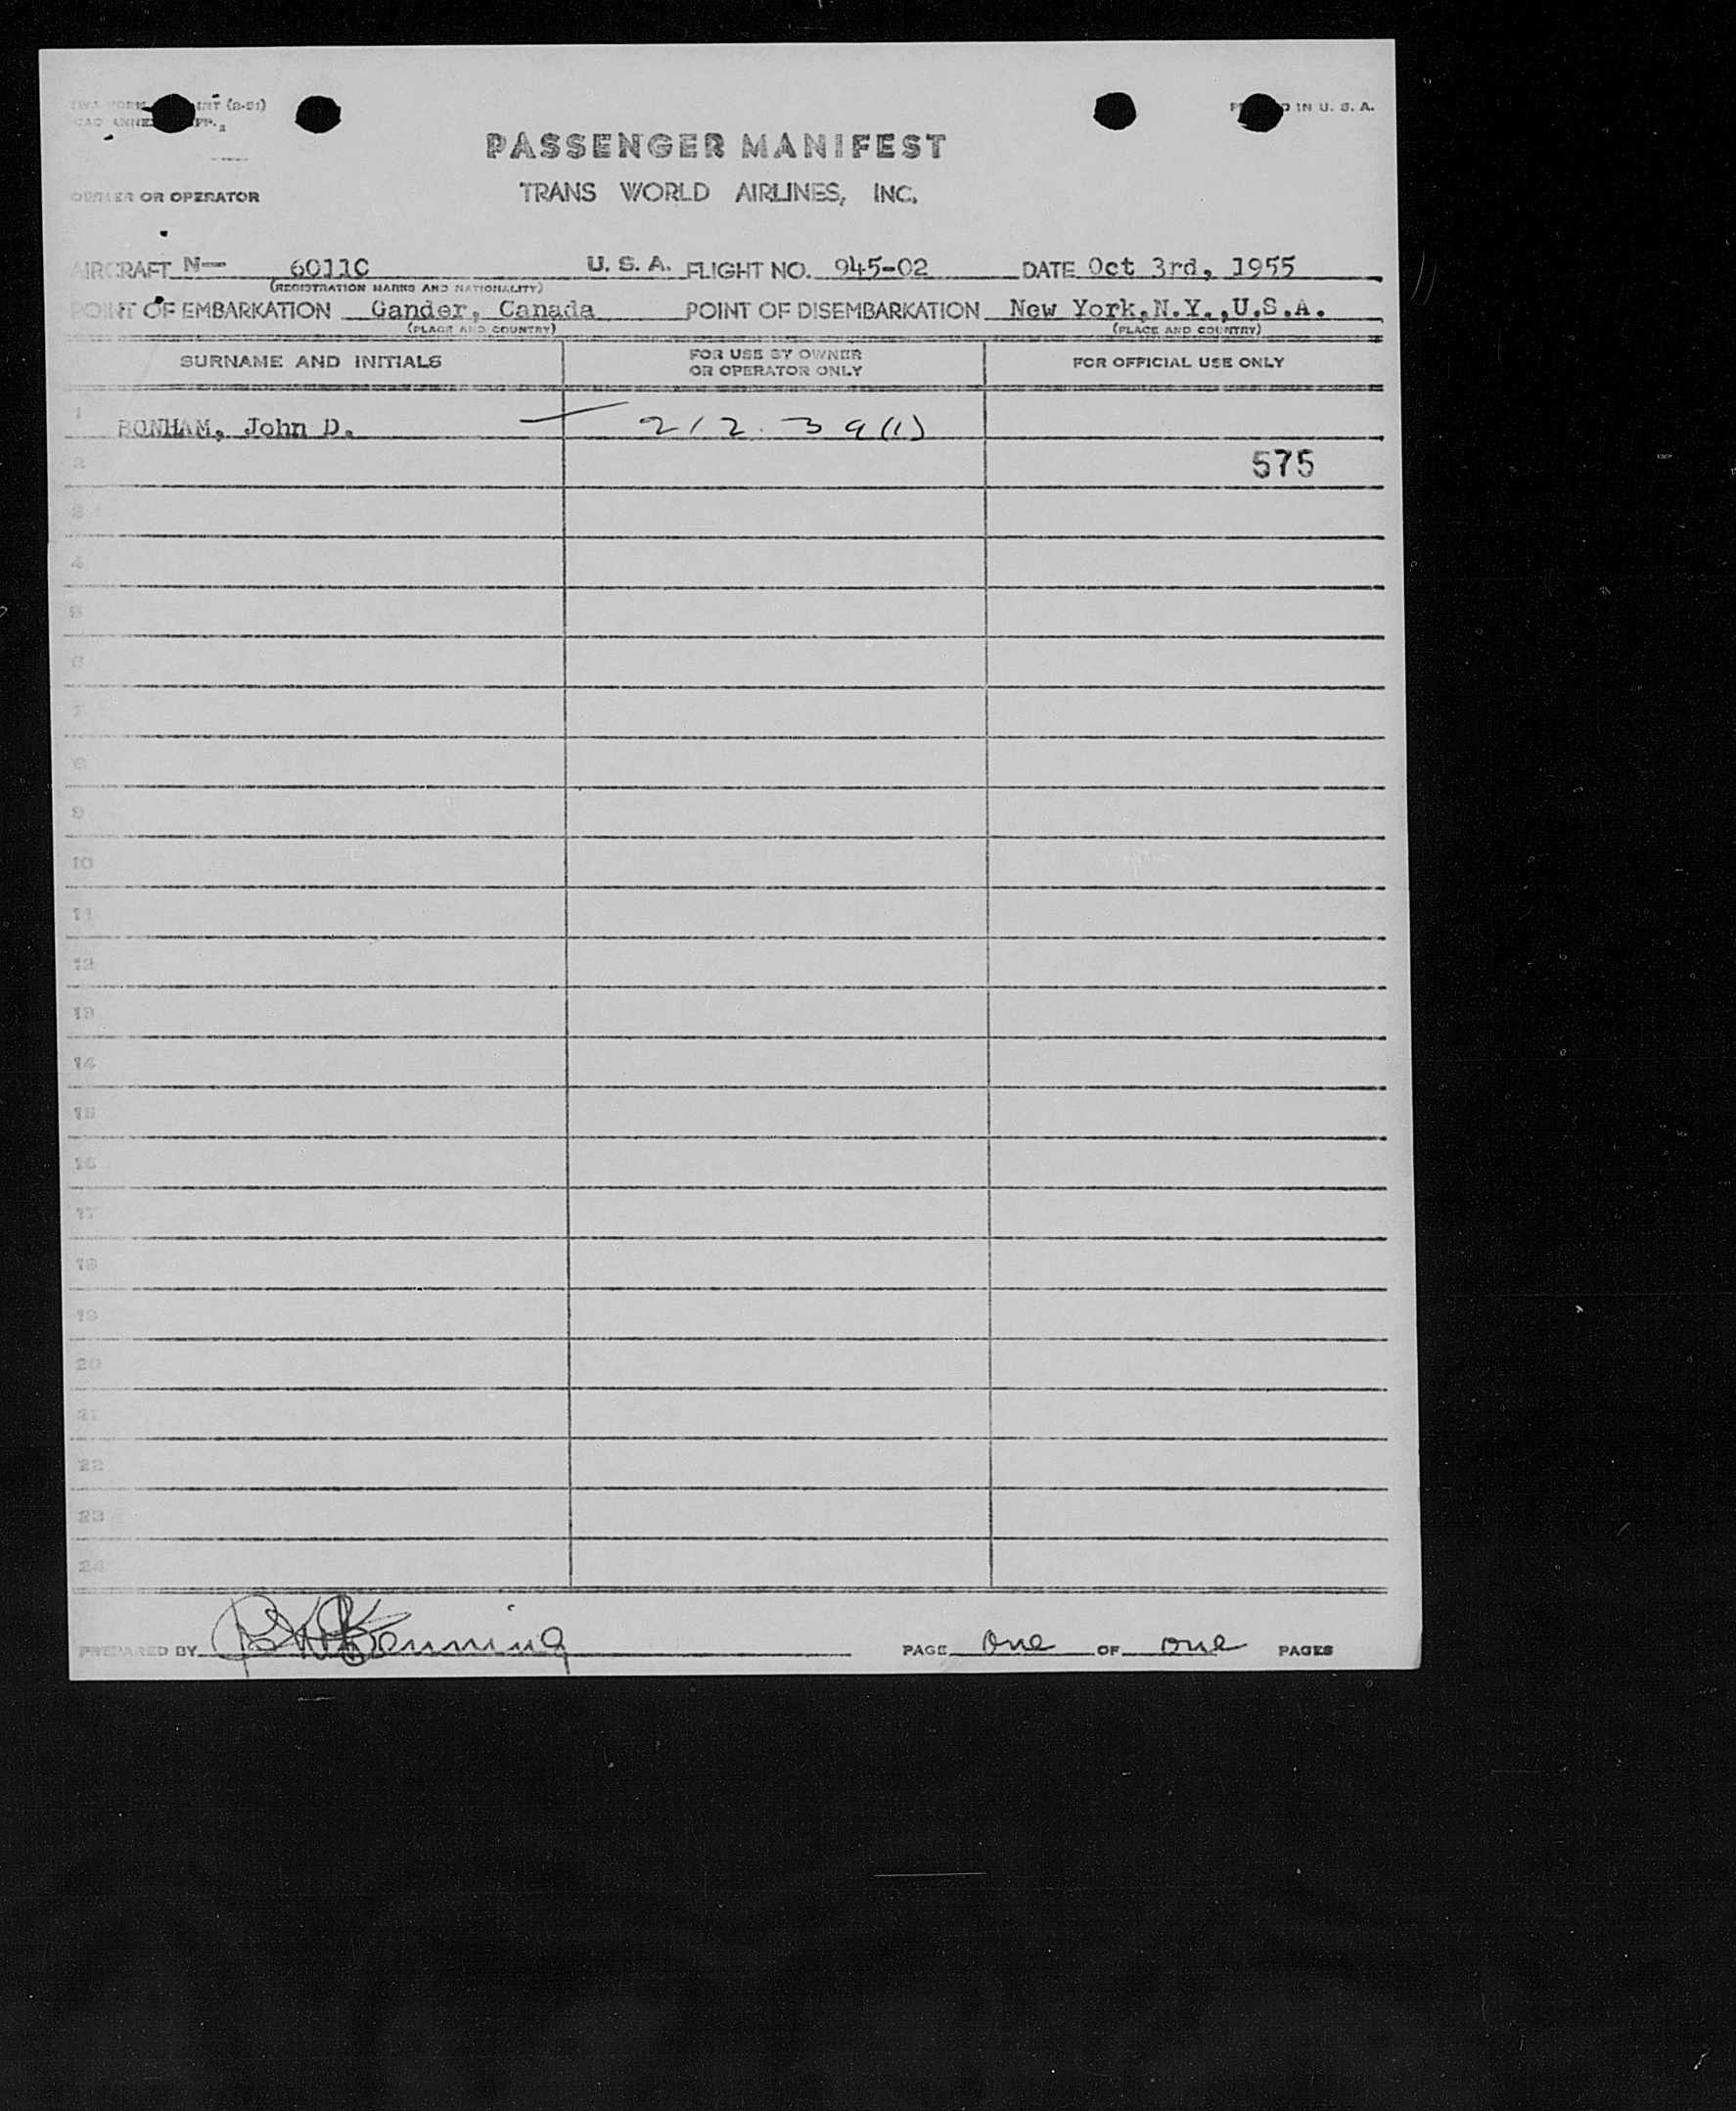 INT (8-51) PRINTED IN U. S. A.
PASSENGER MANIFEST
OWNER OR OPERATOR TRANS WORLD AIRLINES, INC.
AIRCRAFT N— 6011C U. S. A. FLIGHT NO. 945-02 DATE Oct 3rd, 1955
(REGISTRATION MARKS AND NATIONALITY)
POINT OF EMBARKATION Gander, Canada POINT OF DISEMBARKATION New York, N.Y., U.S.A.
(PLACE AND COUNTRY) (PLACE AND COUNTRY)
SURNAME AND INITIALS FOR USE BY OWNER OR OPERATOR ONLY FOR OFFICIAL USE ONLY
1 BONHAM, John D. 212.39(1)
2 575
3
4
5
6
7
8
9
10
11
12
13
14
15
16
17
18
19
20
21
22
23
24
PREPARED BY PAGE one OF one PAGES